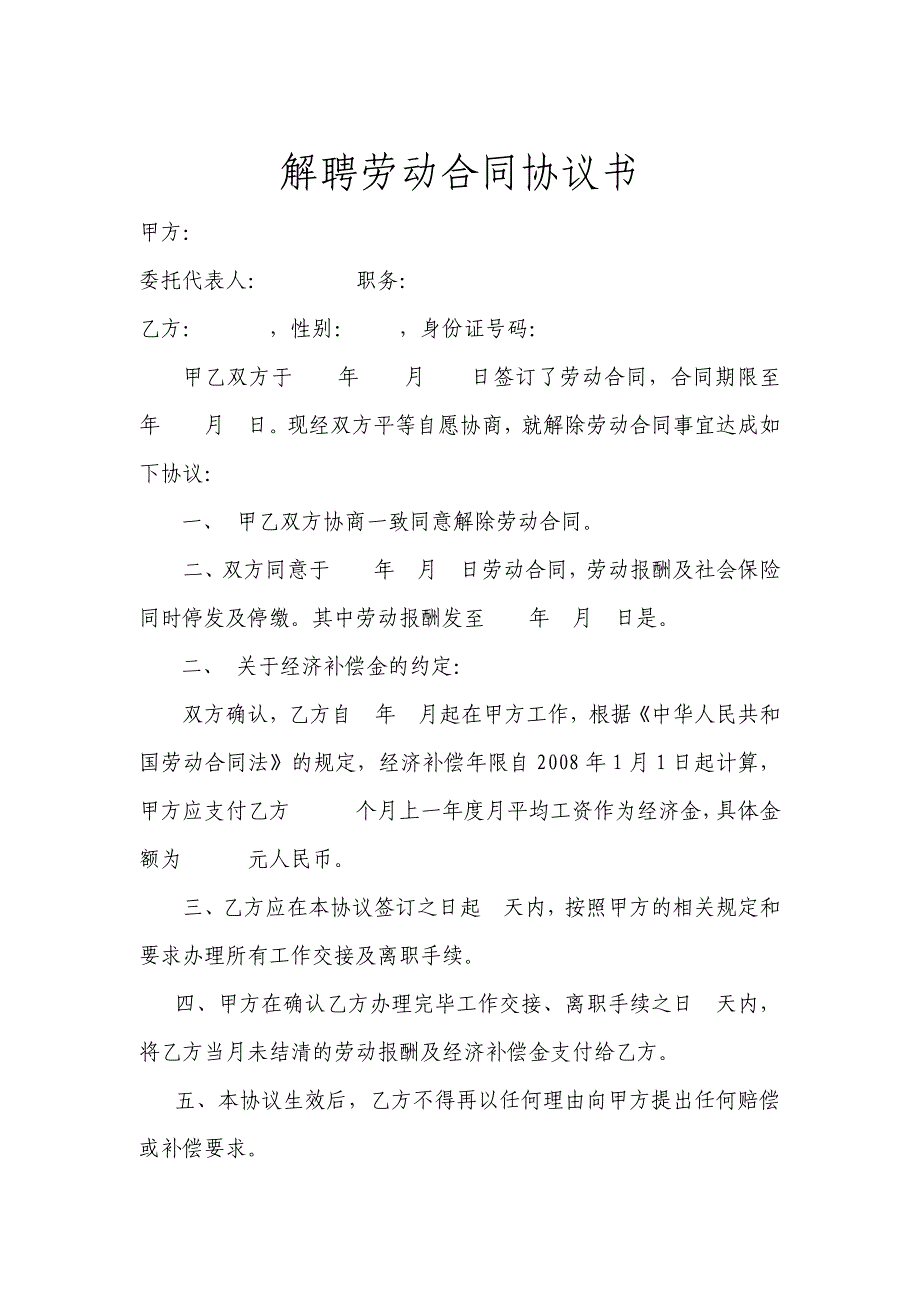 解聘劳动合同协议书
甲方：
委托代表人：　　　　职务：
乙方：　　　，性别：　　，身份证号码：
甲乙双方于　　年　　月　　日签订了劳动合同，合同期限至
年　　月　日。现经双方平等自愿协商，就解除劳动合同事宜达成如
下协议：
一、 甲乙双方协商一致同意解除劳动合同。
二、双方同意于　　年　月　日劳动合同，劳动报酬及社会保险
同时停发及停缴。其中劳动报酬发至　　年　月　日是。
二、 关于经济补偿金的约定：
双方确认，乙方自　年　月起在甲方工作，根据《中华人民共和
国劳动合同法》的规定，经济补偿年限自 2008 年 1 月 1 日起计算，
甲方应支付乙方　　　个月上一年度月平均工资作为经济金，具体金
额为　　　元人民币。
三、乙方应在本协议签订之日起　天内，按照甲方的相关规定和
要求办理所有工作交接及离职手续。
四、甲方在确认乙方办理完毕工作交接、离职手续之日　天内，
将乙方当月未结清的劳动报酬及经济补偿金支付给乙方。
五、本协议生效后，乙方不得再以任何理由向甲方提出任何赔偿
或补偿要求。